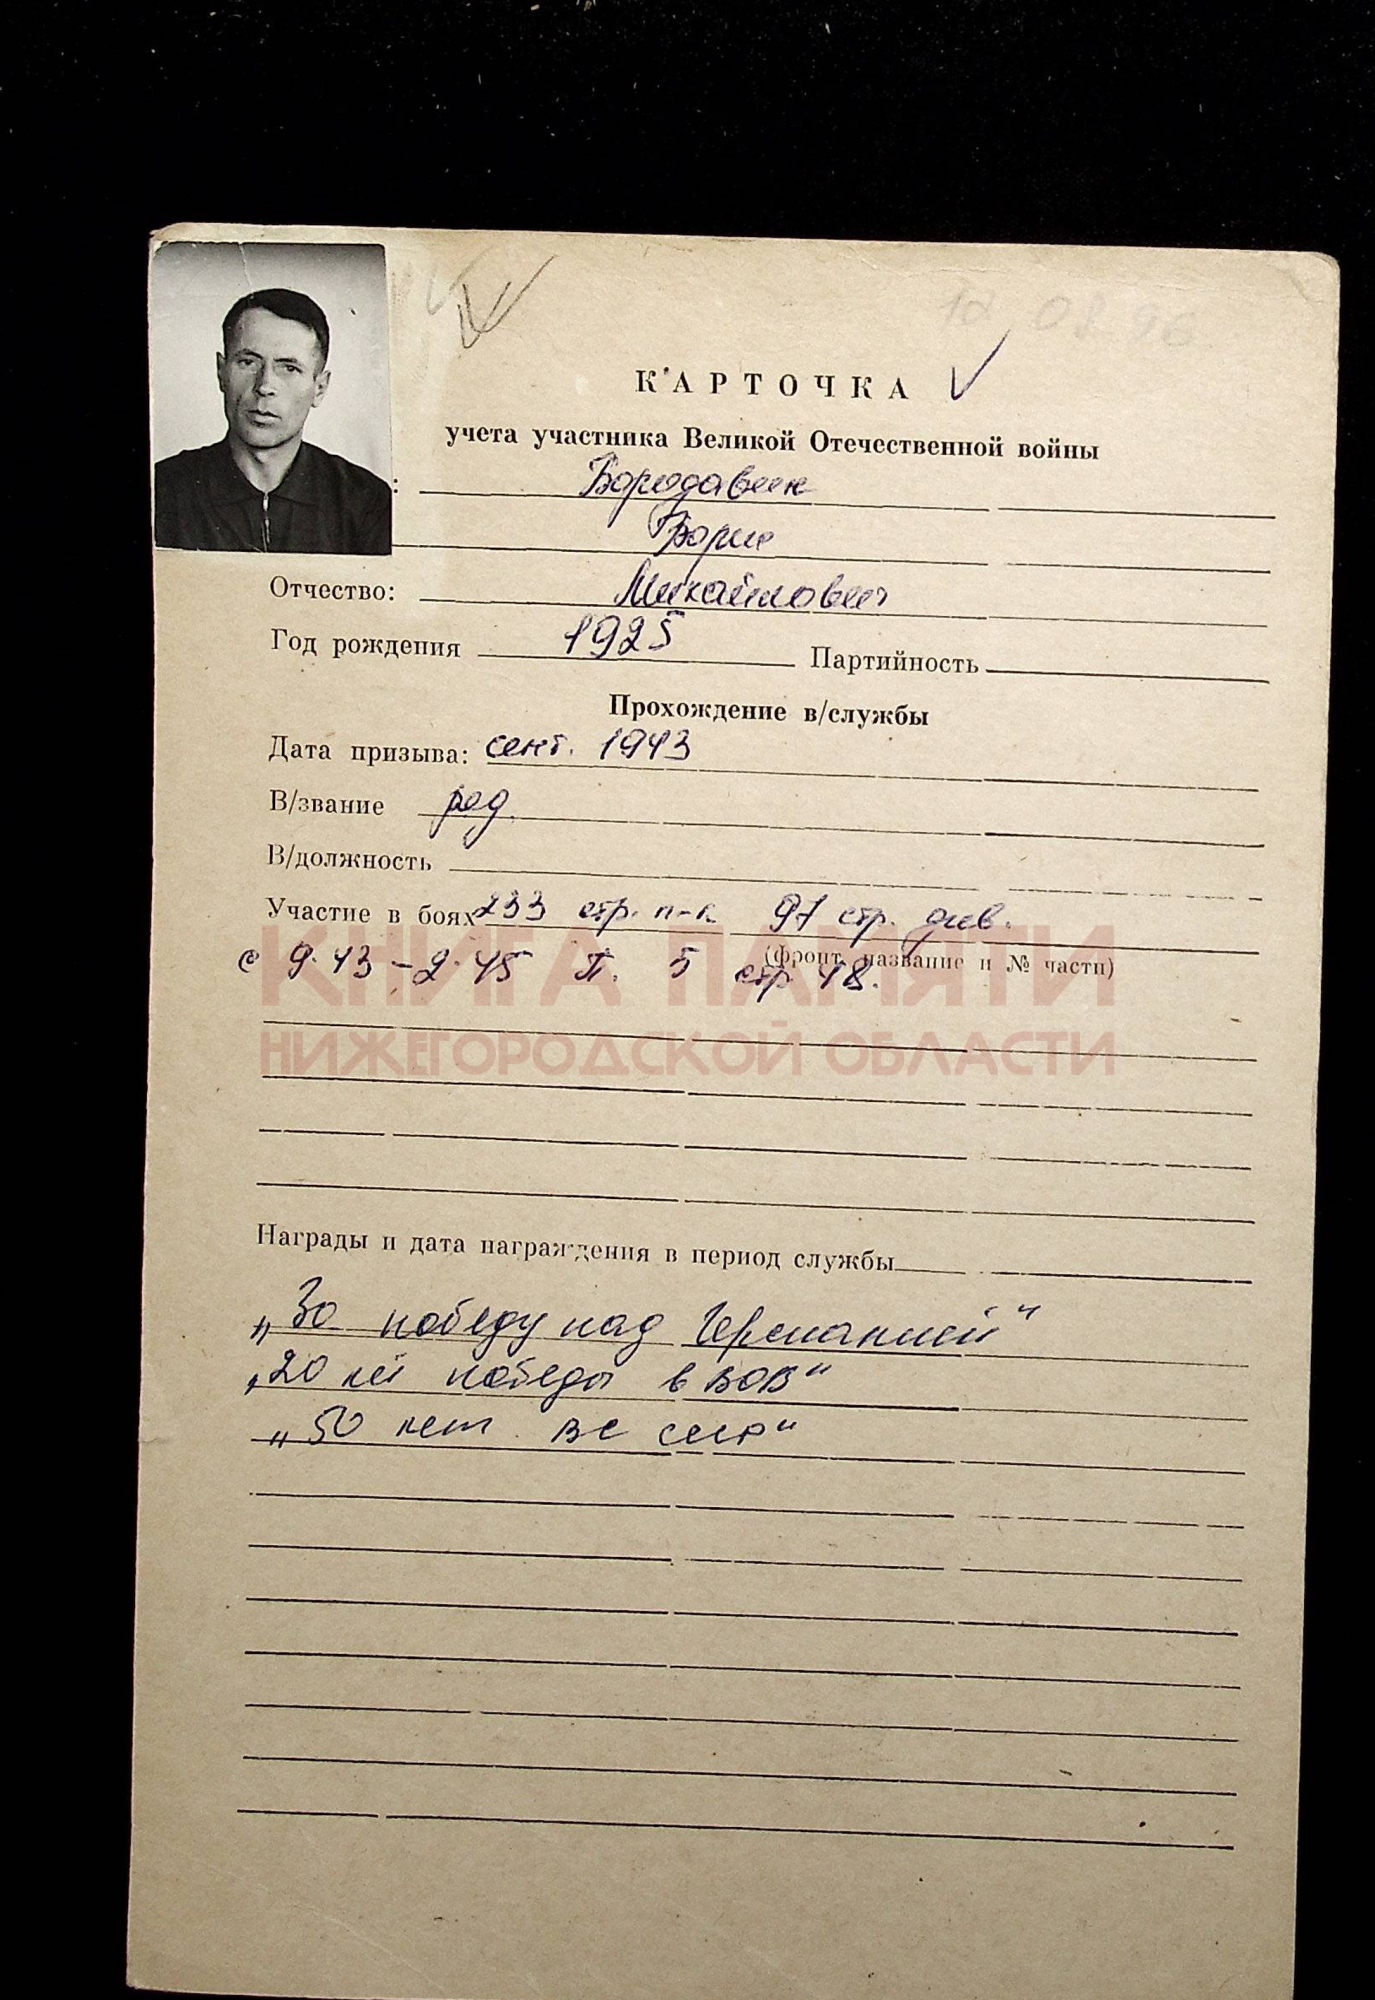 10 08 96
КАРТОЧКА
учета участника Великой Отечественной войны
: Бородавин
Борис
Отчество: Михайлович
Год рождения 1925 Партийность
Прохождение в/службы
Дата призыва: сент. 1943
В/звание ряд.
В/должность
Участие в боях 233 стр. п-к 97 стр. див.
(фронт, название и № части)
с 9.43 - 2.45 П. 5 стр 48.
КНИГА ПАМЯТИ
НИЖЕГОРОДСКОЙ ОБЛАСТИ
Награды и дата награждения в период службы
„За победу над Германией"
„20 лет победы в ВОВ"
„50 лет ВС СССР"